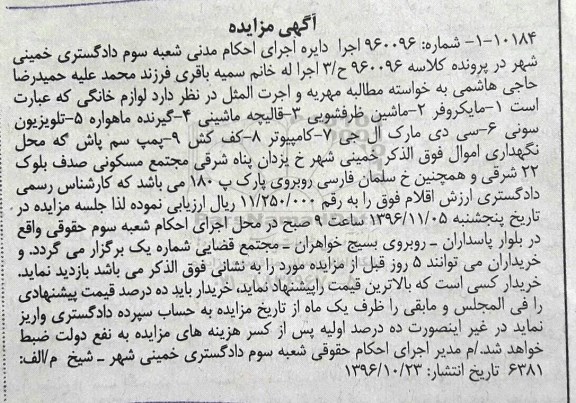 آگهی مزایده
۱۰۱۸۴-۱- شماره: ۹۶۰۰۹۶ اجرا دایره اجرای احکام مدنی شعبه سوم دادگستری خمینی
شهر در پرونده کلاسه ۹۶۰۰۹۶ ح/۳ اجرا له خانم سمیه باقری فرزند محمد علیه حمیدرضا
حاجی هاشمی به خواسته مطالبه مهریه و اجرت المثل در نظر دارد لوازم خانگی که عبارت
است ۱-مایکروفر ۲-ماشین ظرفشویی ۳-قالیچه ماشینی ۴-گیرنده ماهواره ۵-تلویزیون
سونی ۶-سی دی مارک ال جی ۷-کامپیوتر ۸-کف کش ۹-پمپ سم پاش که محل
نگهداری اموال فوق الذکر خمینی شهر خ یزدان پناه شرقی مجتمع مسکونی صدف بلوک
۲۲ شرقی و همچنین خ سلمان فارسی روبروی پارک پ ۱۸۰ می باشد که کارشناس رسمی
دادگستری ارزش اقلام فوق را به رقم ۱۱/۲۵۰/۰۰۰ ریال ارزیابی نموده لذا جلسه مزایده در
تاریخ پنجشنبه ۱۳۹۶/۱۱/۰۵ ساعت ۹ صبح در محل اجرای احکام شعبه سوم حقوقی واقع
در بلوار پاسداران ـ روبروی بسیج خواهران ـ مجتمع قضایی شماره یک برگزار می گردد. و
خریداران می توانند ۵ روز قبل از مزایده مورد را به نشانی فوق الذکر می باشد بازدید نماید.
خریدار کسی است که بالاترین قیمت راپیشنهاد نماید، خریدار باید ده درصد قیمت پیشنهادی
را فی المجلس و مابقی را ظرف یک ماه از تاریخ مزایده به حساب سپرده دادگستری واریز
نماید در غیر اینصورت ده درصد اولیه پس از کسر هزینه های مزایده به نفع دولت ضبط
خواهد شد./م مدیر اجرای احکام حقوقی شعبه سوم دادگستری خمینی شهر ـ شیخ م/الف:
۶۳۸۱ تاریخ انتشار: ۱۳۹۶/۱۰/۲۳